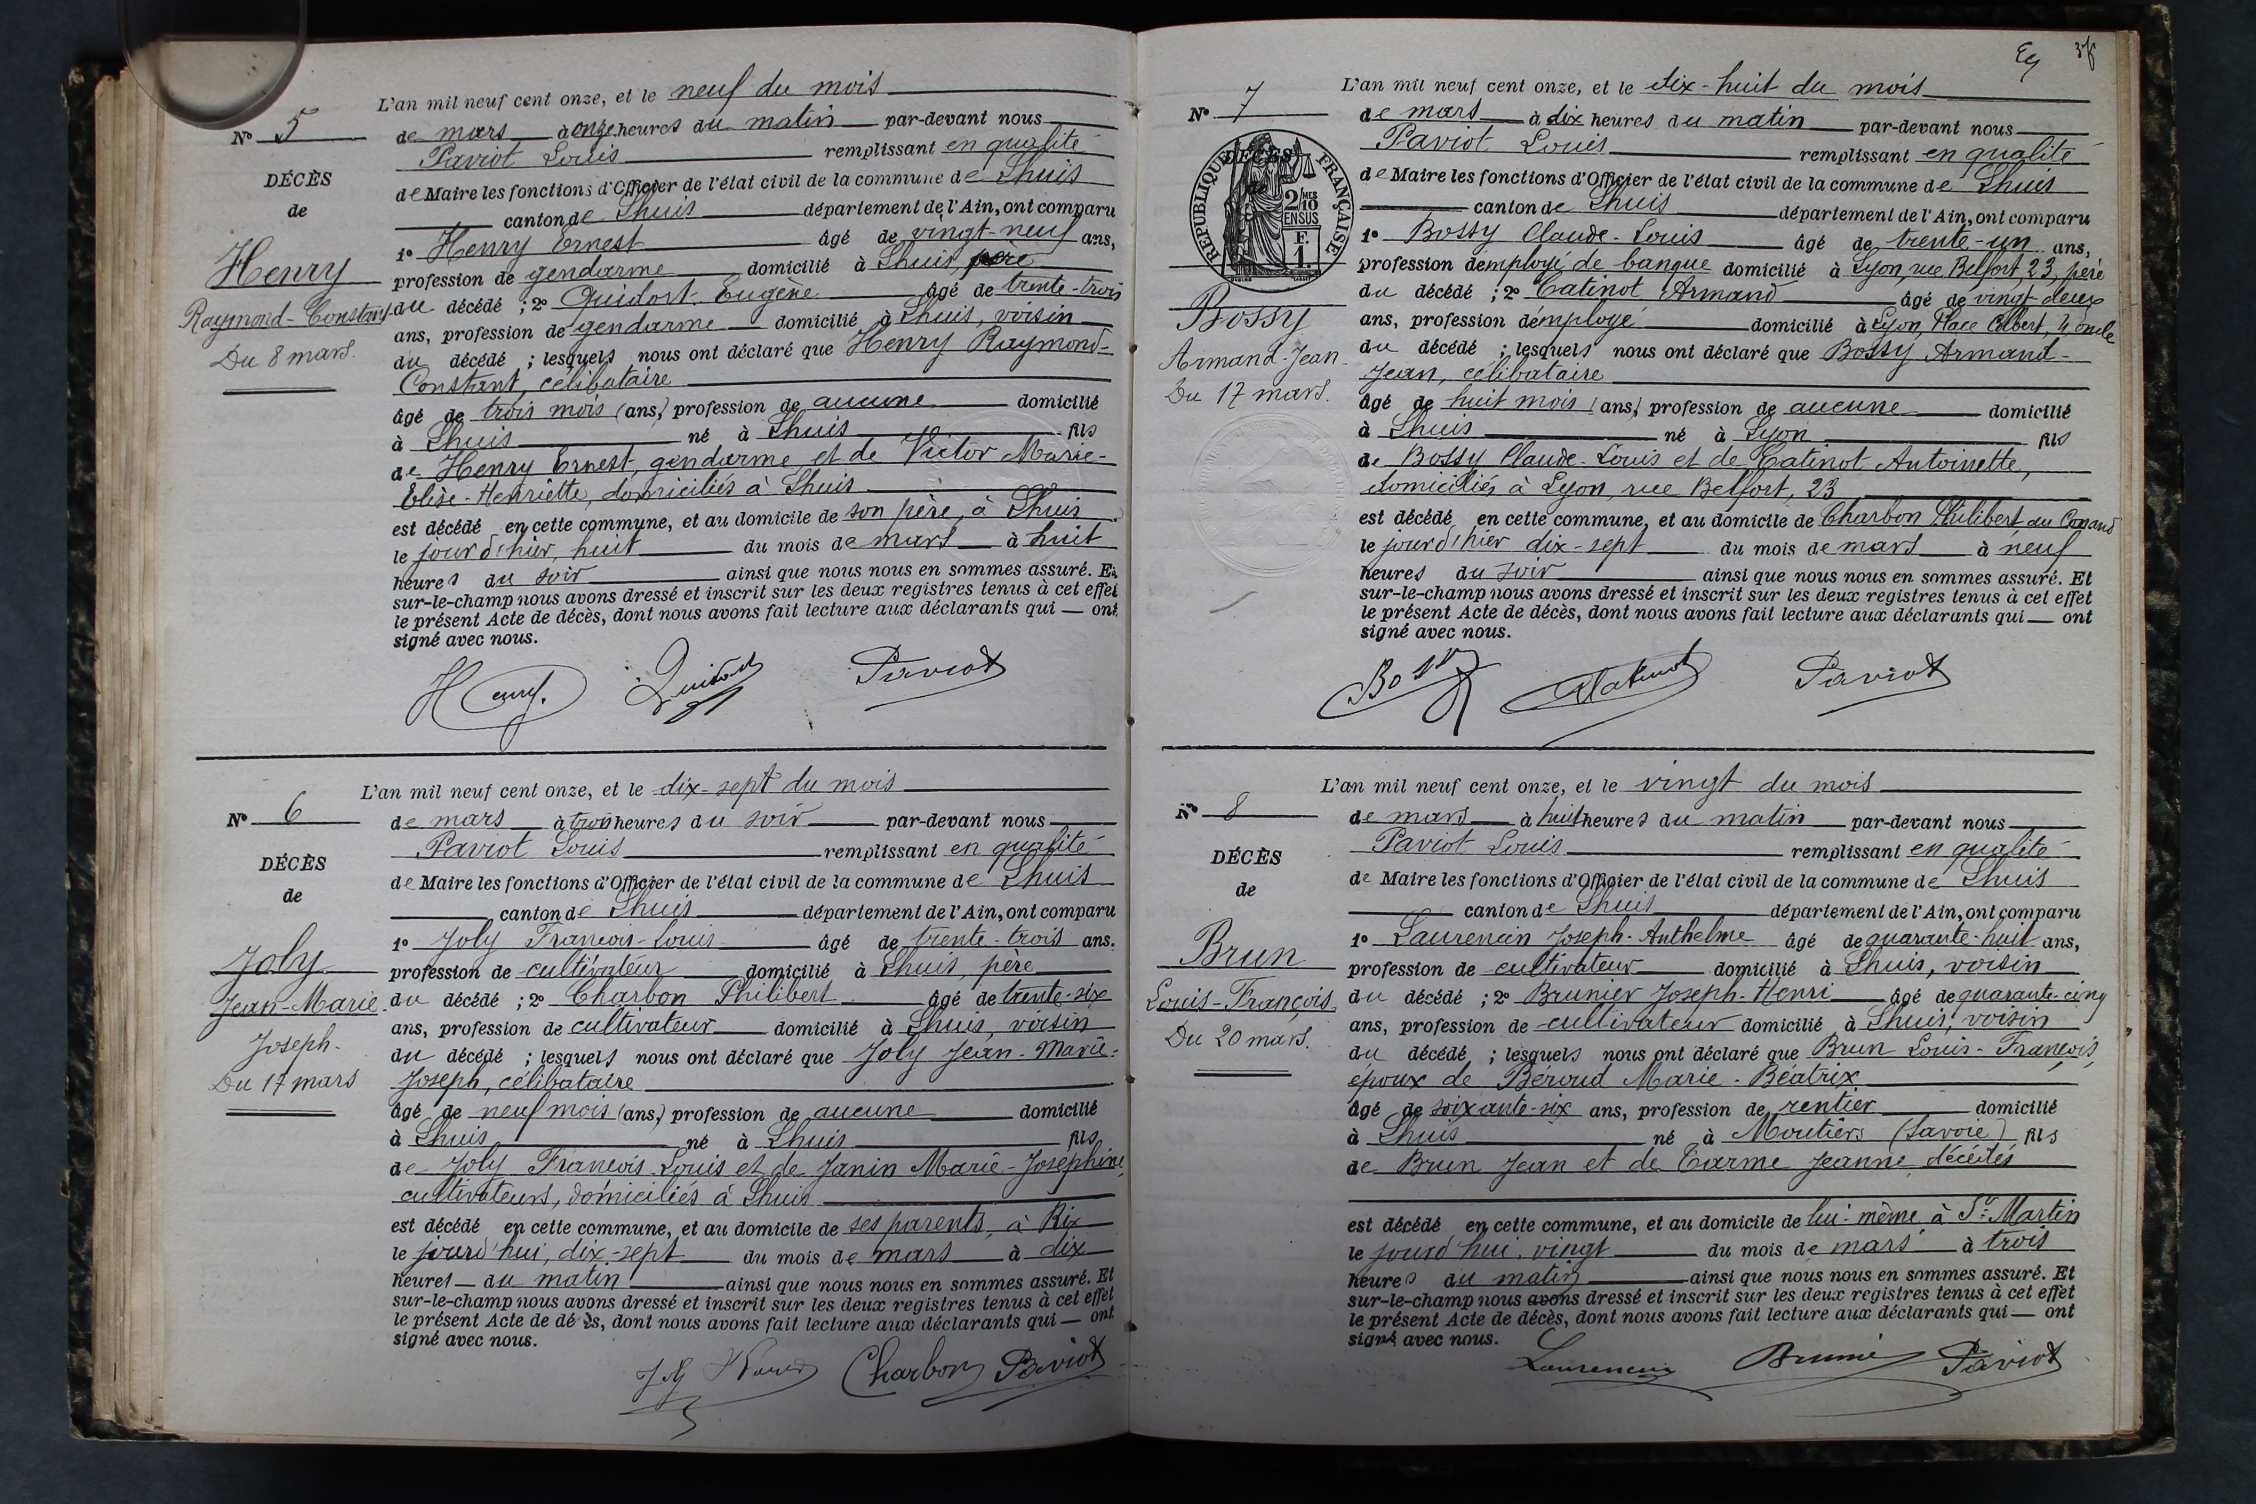 L'an mil neuf cent onze, et le neuf du mois
N° 5
de mars à onze heures du matin par-devant nous
Paviot Louis remplissant en qualité
DÉCÈS
de Maire les fonctions d'Officier de l'état civil de la commune de Lhuis
de
canton de Lhuis département de l'Ain, ont comparu
1° Henry Ernest âgé de vingt-neuf ans,
Henry
profession de gendarme domicilié à Lhuis, père
Raymond-Constant
du décédé ; 2° Guidost Eugène âgé de trente-trois
ans, profession de gendarme domicilié à Lhuis, voisin
Du 8 mars.
du décédé ; lesquels nous ont déclaré que Henry Raymond-
Constant, célibataire
âgé de trois mois (ans,) profession de aucune domicilié
à Lhuis né à Lhuis fils
de Henry Ernest, gendarme et de Victor Marie-
Elise-Henriette, domiciliés à Lhuis
est décédé en cette commune, et au domicile de son père, à Lhuis
le jour d'hier, huit du mois de mars à huit
heures du soir ainsi que nous nous en sommes assuré. Et
sur-le-champ nous avons dressé et inscrit sur les deux registres tenus à cet effet
le présent Acte de décès, dont nous avons fait lecture aux déclarants qui ont
signé avec nous.
Henry. Paviot
L'an mil neuf cent onze, et le dix-sept du mois
N° 6
de mars à trois heures du soir par-devant nous
Paviot Louis remplissant en qualité
DÉCÈS
de Maire les fonctions d'Officier de l'état civil de la commune de Lhuis
de
canton de Lhuis département de l'Ain, ont comparu
1° Joly François-Louis âgé de trente-trois ans.
Joly
profession de cultivateur domicilié à Lhuis, père
Jean-Marie-
du décédé ; 2° Charbon Philibert âgé de trente-six
ans, profession de cultivateur domicilié à Lhuis, voisin
Joseph-
du décédé ; lesquels nous ont déclaré que Joly Jean-Marie-
Du 17 mars
Joseph, célibataire
âgé de neuf mois (ans,) profession de aucune domicilié
à Lhuis né à Lhuis fils
de Joly François Louis et de Janin Marie-Joséphine,
cultivateurs, domiciliés à Lhuis
est décédé en cette commune, et au domicile de ses parents, à Rix
le jourd'hui, dix-sept du mois de mars à dix
heures du matin ainsi que nous nous en sommes assuré. Et
sur-le-champ nous avons dressé et inscrit sur les deux registres tenus à cet effet
le présent Acte de décès, dont nous avons fait lecture aux déclarants qui ont
signé avec nous.
Charbon Paviot
L'an mil neuf cent onze, et le dix-huit du mois
N° 7
de mars à dix heures du matin par-devant nous
Paviot Louis remplissant en qualité
DÉCÈS
de
RÉPUBLIQUE FRANÇAISE
2/10 MES
EN SUS
F. 1.
de Maire les fonctions d'Officier de l'état civil de la commune de Lhuis
canton de Lhuis département de l'Ain, ont comparu
1° Bossy Claude-Louis âgé de trente-un ans,
profession d'employé de banque domicilié à Lyon, rue Belfort, 23, père
Bossy
du décédé ; 2° Catinot Armand âgé de vingt-deux
ans, profession d'employé domicilié à Lyon, Place Colbert, 4 oncle
Armand-Jean
du décédé ; lesquels nous ont déclaré que Bossy Armand-
Jean, célibataire
Du 17 mars.
âgé de huit mois (ans,) profession de aucune domicilié
à Lhuis né à Lyon fils
de Bossy Claude-Louis et de Catinot Antoinette,
domiciliés à Lyon, rue Belfort, 23
est décédé en cette commune, et au domicile de Charbon Philibert au
le jour d'hier dix-sept du mois de mars à neuf
heures du soir ainsi que nous nous en sommes assuré. Et
sur-le-champ nous avons dressé et inscrit sur les deux registres tenus à cet effet
le présent Acte de décès, dont nous avons fait lecture aux déclarants qui ont
signé avec nous.
Bossy Catinot Paviot
L'an mil neuf cent onze, et le vingt du mois
N° 8
de mars à huit heures du matin par-devant nous
Paviot Louis remplissant en qualité
DÉCÈS
de Maire les fonctions d'Officier de l'état civil de la commune de Lhuis
de
canton de Lhuis département de l'Ain, ont comparu
1° Laurencin Joseph-Anthelme âgé de quarante-huit ans,
Brun
profession de cultivateur domicilié à Lhuis, voisin
Louis-François
du décédé ; 2° Brunier Joseph-Henri âgé de quarante-cinq
ans, profession de cultivateur domicilié à Lhuis, voisin
Du 20 mars.
du décédé ; lesquels nous ont déclaré que Brun Louis-François,
époux de Béroud Marie-Béatrix
âgé de soixante-six ans, profession de rentier domicilié
à Lhuis né à Moutiers (Savoie) fils
de Brun Jean et de Carme Jeanne, décédés
est décédé en cette commune, et au domicile de lui-même à St-Martin
le jourd'hui, vingt du mois de mars à trois
heures du matin ainsi que nous nous en sommes assuré. Et
sur-le-champ nous avons dressé et inscrit sur les deux registres tenus à cet effet
le présent Acte de décès, dont nous avons fait lecture aux déclarants qui ont
signé avec nous.
Laurencin Brunier Paviot